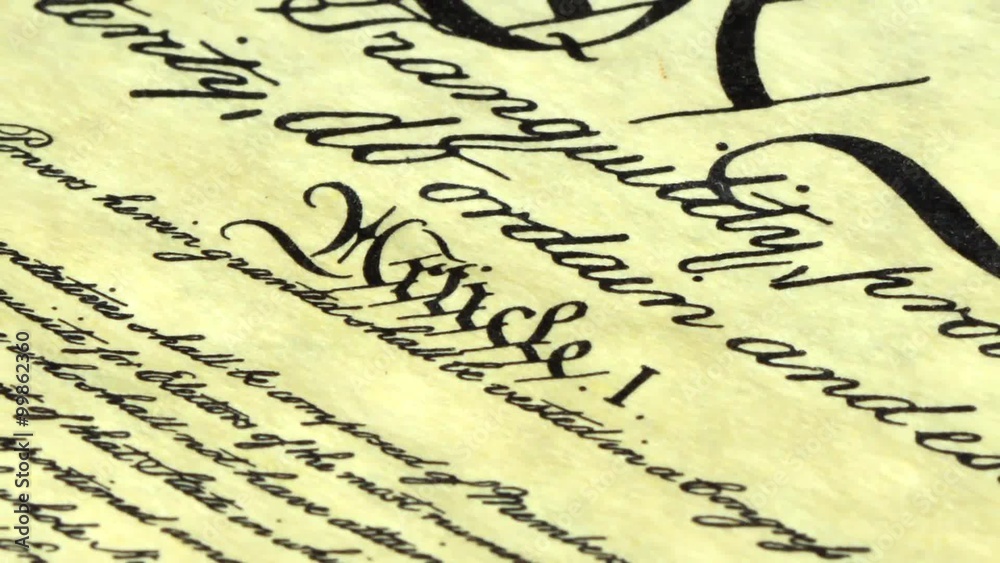 Tranquility, pro
terity, do ordain and es
Article. I.
Powers herein granted shall be vested in a Congress
entatives shall be composed of Members
quisite for Electors of the most numer
who shall not have attain
of that State in wh
Adobe Stock | #99862360